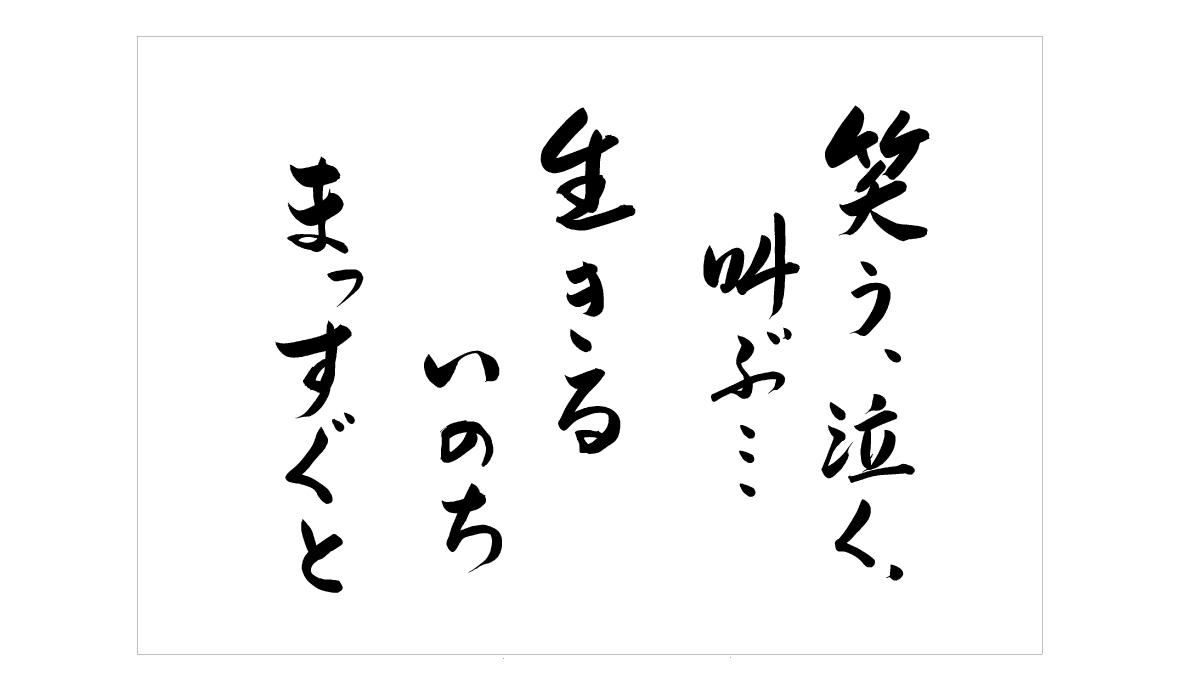 笑う、泣く、
叫ぶ…
生きる
いのち
まっすぐと